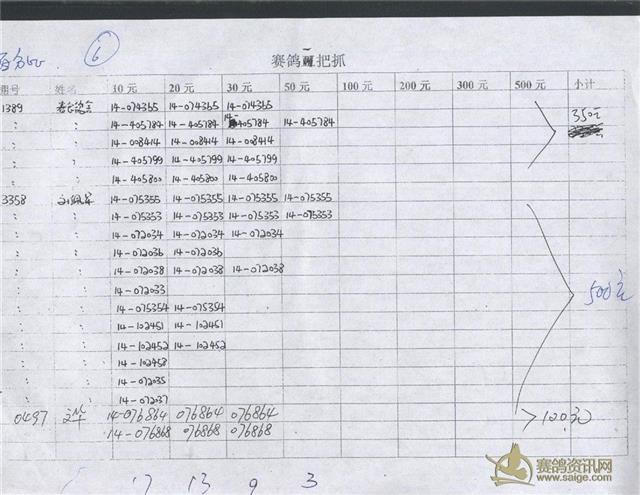 ⑥
赛鸽 把抓
棚号 姓名 10元 20元 30元 50元 100元 200元 300元 500元 小计
1389 14-074365 14-074365 14-074365 350元
〃 〃 14-405784 14-405784 14-405784 14-405784
〃 〃 14-008414 14-008414 14-008414
〃 〃 14-405799 14-405799 14-405799
〃 〃 14-405800 14-405800 14-405800
3358 14-075355 14-075355 14-075355 14-075355
〃 〃 14-075353 14-075353 14-075353 14-075353
〃 〃 14-072034 14-072034 14-072034
〃 〃 14-072036 14-072036
〃 〃 14-072038 14-072038 14-072038 500元
〃 〃 14-072033
〃 〃 14-075354 14-075354
〃 〃 14-102451 14-102451
〃 〃 14-102452 14-102452
〃 〃 14-102453
〃 〃 14-072035
〃 〃 14-072037
0497 14-076864 076864 076864 120元
14-076868 076868 076868
17 13 9 3
赛鸽资讯网
www.saige.com